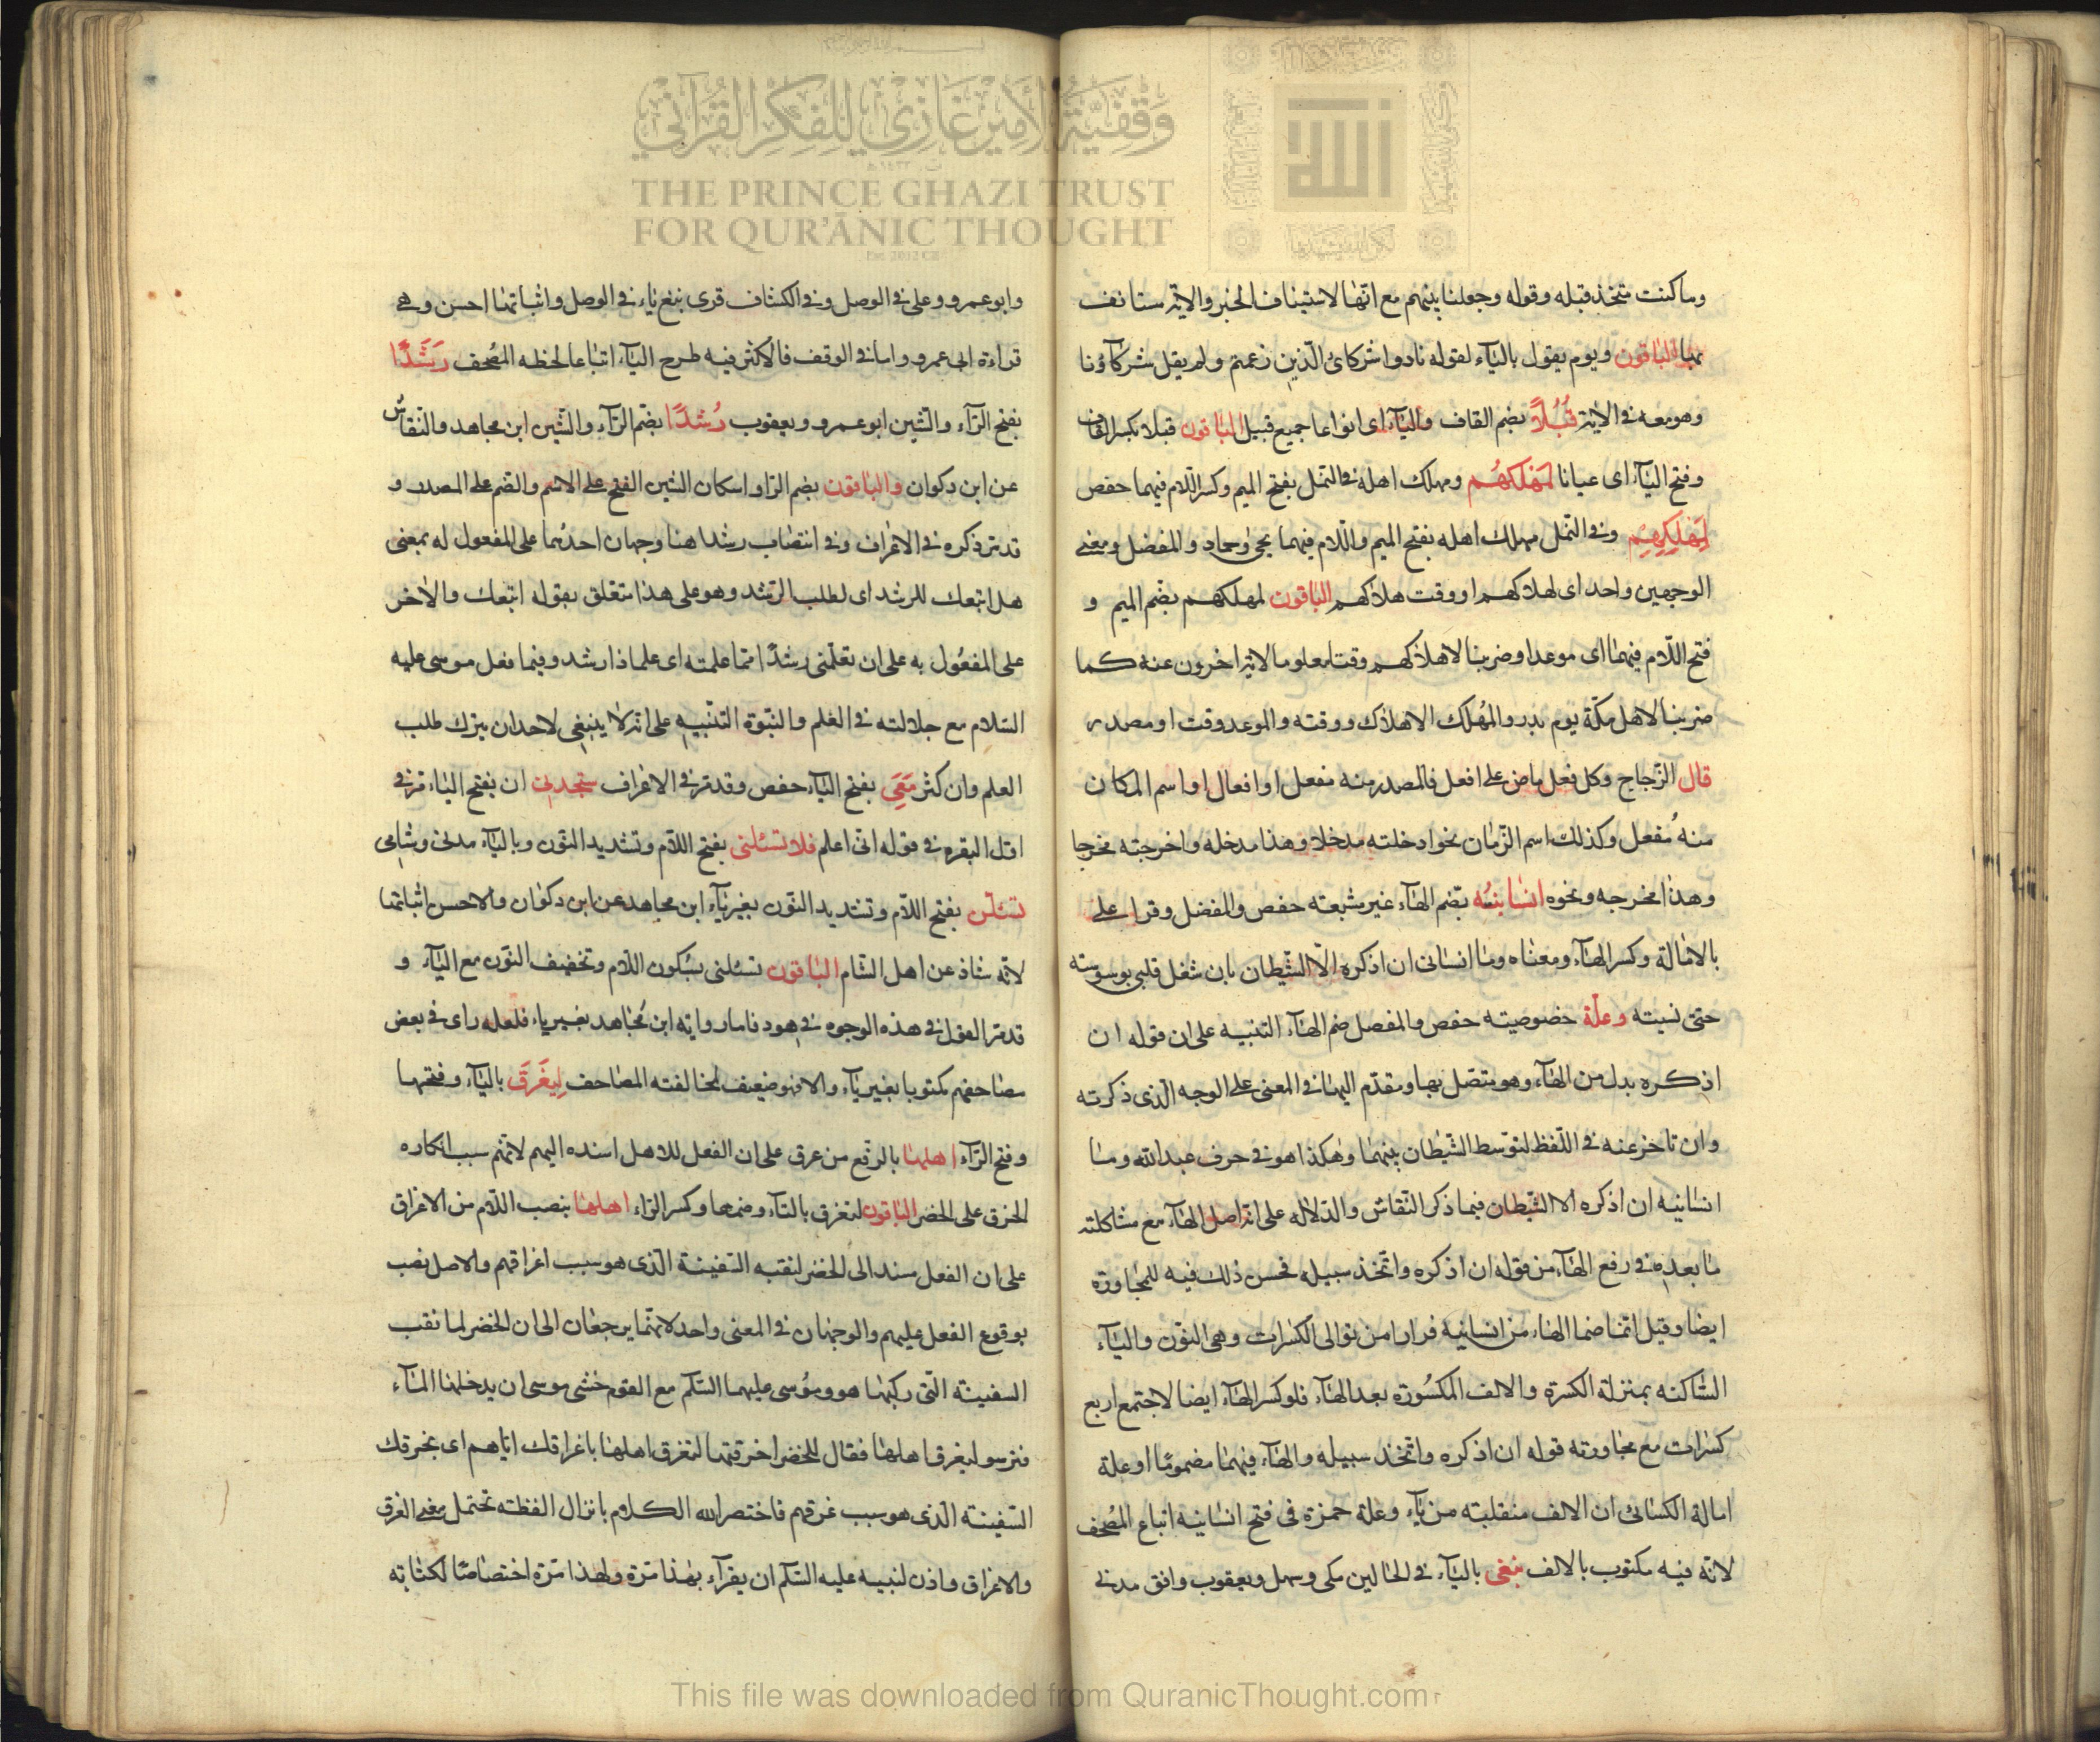 وقفية الأمير غازي للفكر القرآني
THE PRINCE GHAZI TRUST
FOR QUR'ĀNIC THOUGHT
وما كنت متخذ قبله وقوله وجعلنا بينهم مع انها لاستيناف الخبر والاية مستانف
بها الباقون ويوم يقول بالياء لقوله نادوا شركائ الذين زعمتم ولم يقل شركاؤنا
وهو معه في الاية قُبُلاً بضم القاف والباء اى انواعا جميع قبيل الباقون قبلا بكسر القاف
وفتح الباء اى عيانا لمهلكهم ومهلك اهله في النمل بفتح الميم وكسر اللام فيهما حفص
لمهلكهم وفي النمل مهلك اهله بفتح الميم واللام فيهما يحيى وحماد والمفضل ومعنى
الوجهين واحد اى لهلاكهم او وقت هلاكهم الباقون لمهلكهم بضم الميم و
فتح اللام فيهما اى موعدا وضربنا لاهلاكهم وقتا معلوما لايتاخرون عنه كما
ضربنا لاهل مكة يوم بدر والمُهلك الاهلاك ووقته والموعد وقت او مصدر
قال الزجاج وكل فعل ماض على افعل فالمصدر منه مفعل او افعال او اسم المكان
منه مُفعل وكذلك اسم الزمان نحو ادخلته مدخلا وهذا مدخله واخرجته مخرجا
وهذا مخرجه ونحوه انسانيه بضم الهاء غير مشبعته حفص والمفضل وقرا على
بالامالة وكسر الهاء ومعناه وما انسانى ان اذكره الا الشيطان بان شغل قلبى بوسوسته
حتى نسيته وعلة خصوصيته حفص والمفصل ضم الهاء التنبيه على ان قوله ان
اذكره بدل من الهاء وهو متصل بها ومقدم اليها في المعنى على الوجه الذى ذكرته
وان تاخر عنه في اللفظ لتوسط الشيطان بينهما وهكذا هو في حرف عبد الله وما
انسانيه ان اذكره الا الشيطان فيما ذكر النقاش والدلاله على انه اصل الهاء مع مشاكلته
ما بعده في رفع الهاء من قوله ان اذكره واتخذ سبيله فحسن ذلك فيه للمجاورة
ايضا وقيل انما ضما الهاء من انسانيه فرارا من توالى الكسرات وهى النون والياء
الساكنه بمنزلة الكسرة والالف المكسورة بعد الهاء فلو كسر الهاء ايضا لاجتمع اربع
كسرات مع مجاورته قوله ان اذكره واتخذ سبيله والهاء فيهما مضموما او علة
امالة الكسائ ان الالف منقلبته من ياء وعلة حمزة في فتح انسانيه اتباع المصحف
لانه فيه مكتوب بالالف نبغى بالياء في الحالين مكى وسهل ويعقوب وافق مدنى
وابو عمرو وعلى في الوصل وفي الكشاف قرى نبغ بغير ياء في الوصل واثباتها احسن وهى
قراءة ابى عمرو واما في الوقف فالاكثر فيه طرح الياء اتباعا لخط المصحف رَشَدًا
بفتح الراء والشين ابو عمرو ويعقوب رُشُدًا بضم الراء والشين ابن مجاهد والنقاش
عن ابن دكوان والباقون بضم الرا واسكان الشين الفتح على الاسم والضم على المصدر و
قد مر ذكره في الاعراف وفي انتصاب رشدا هنا وجهان احدهما على المفعول له بمعنى
هل اتبعك للرشد اى لطلب الرشد وهو على هذا متعلق بقوله اتبعك والاخر
على المفعول به على ان تعلمنى رشدًا مما علمته اى علما ذا رشد وفيما فعل موسى عليه
السلام مع جلالته في العلم والنبوة التنبيه على انه لا ينبغى لاحد ان يترك طلب
العلم وان كثر مَعِىَ بفتح الياء حفص وقد مر في الاعراف ستجدنى ان بفتح الياء مر في
اول البقره في قوله انى اعلم فلا تسئلنى بفتح اللام وتشديد النون وبالياء مدنى وشامى
تسئلن بفتح اللام وتشديد النون بغير ياء ابن مجاهد عن ابن دكوان والاحسن اثباتها
لانه شاذ عن اهل الشام الباقون تسئلنى بسكون اللام وتخفيف النون مع الياء و
قد مر القول في هذه الوجوه في هود فاما رواية ابن مجاهد بغير ياء فلعله راى في بعض
مصاحفهم مكتوبا بغير ياء والا فهو ضعيف لمخالفته المصاحف لِيَغرَقَ بالياء وفتحها
وفتح الراء اهلها بالرفع من غرق على ان الفعل للاهل اسنده اليهم لانهم سبب انكاره
الخرق على الخضر الباقون لتغرق بالتاء وضمها وكسر الراء اهلها بنصب اللام من الاغراق
على ان الفعل مسند الى الخضر لنقبه السفينة الذى هو سبب اغراقهم والاهل نصب
بوقوع الفعل عليهم والوجهان في المعنى واحد لانهما يرجعان الى ان الخضر لما نقب
السفينة التى ركبها هو وموسى عليهما السلم مع القوم خشى موسى ان يدخلها الماء
فترسو ليغرق اهلها فقال للخضر اخرقتها لتغرق اهلها باغراقك اياهم اى بخرقك
السفينة الذى هو سبب غرقهم فاختصر الله الكلام بانزال الفظته تحتمل معنى الغرق
والاغراق واذن لنبيه عليه السلم ان يقراء بهذا مرة ولهذا مرة اختصاصًا لكتابه
This file was downloaded from QuranicThought.com